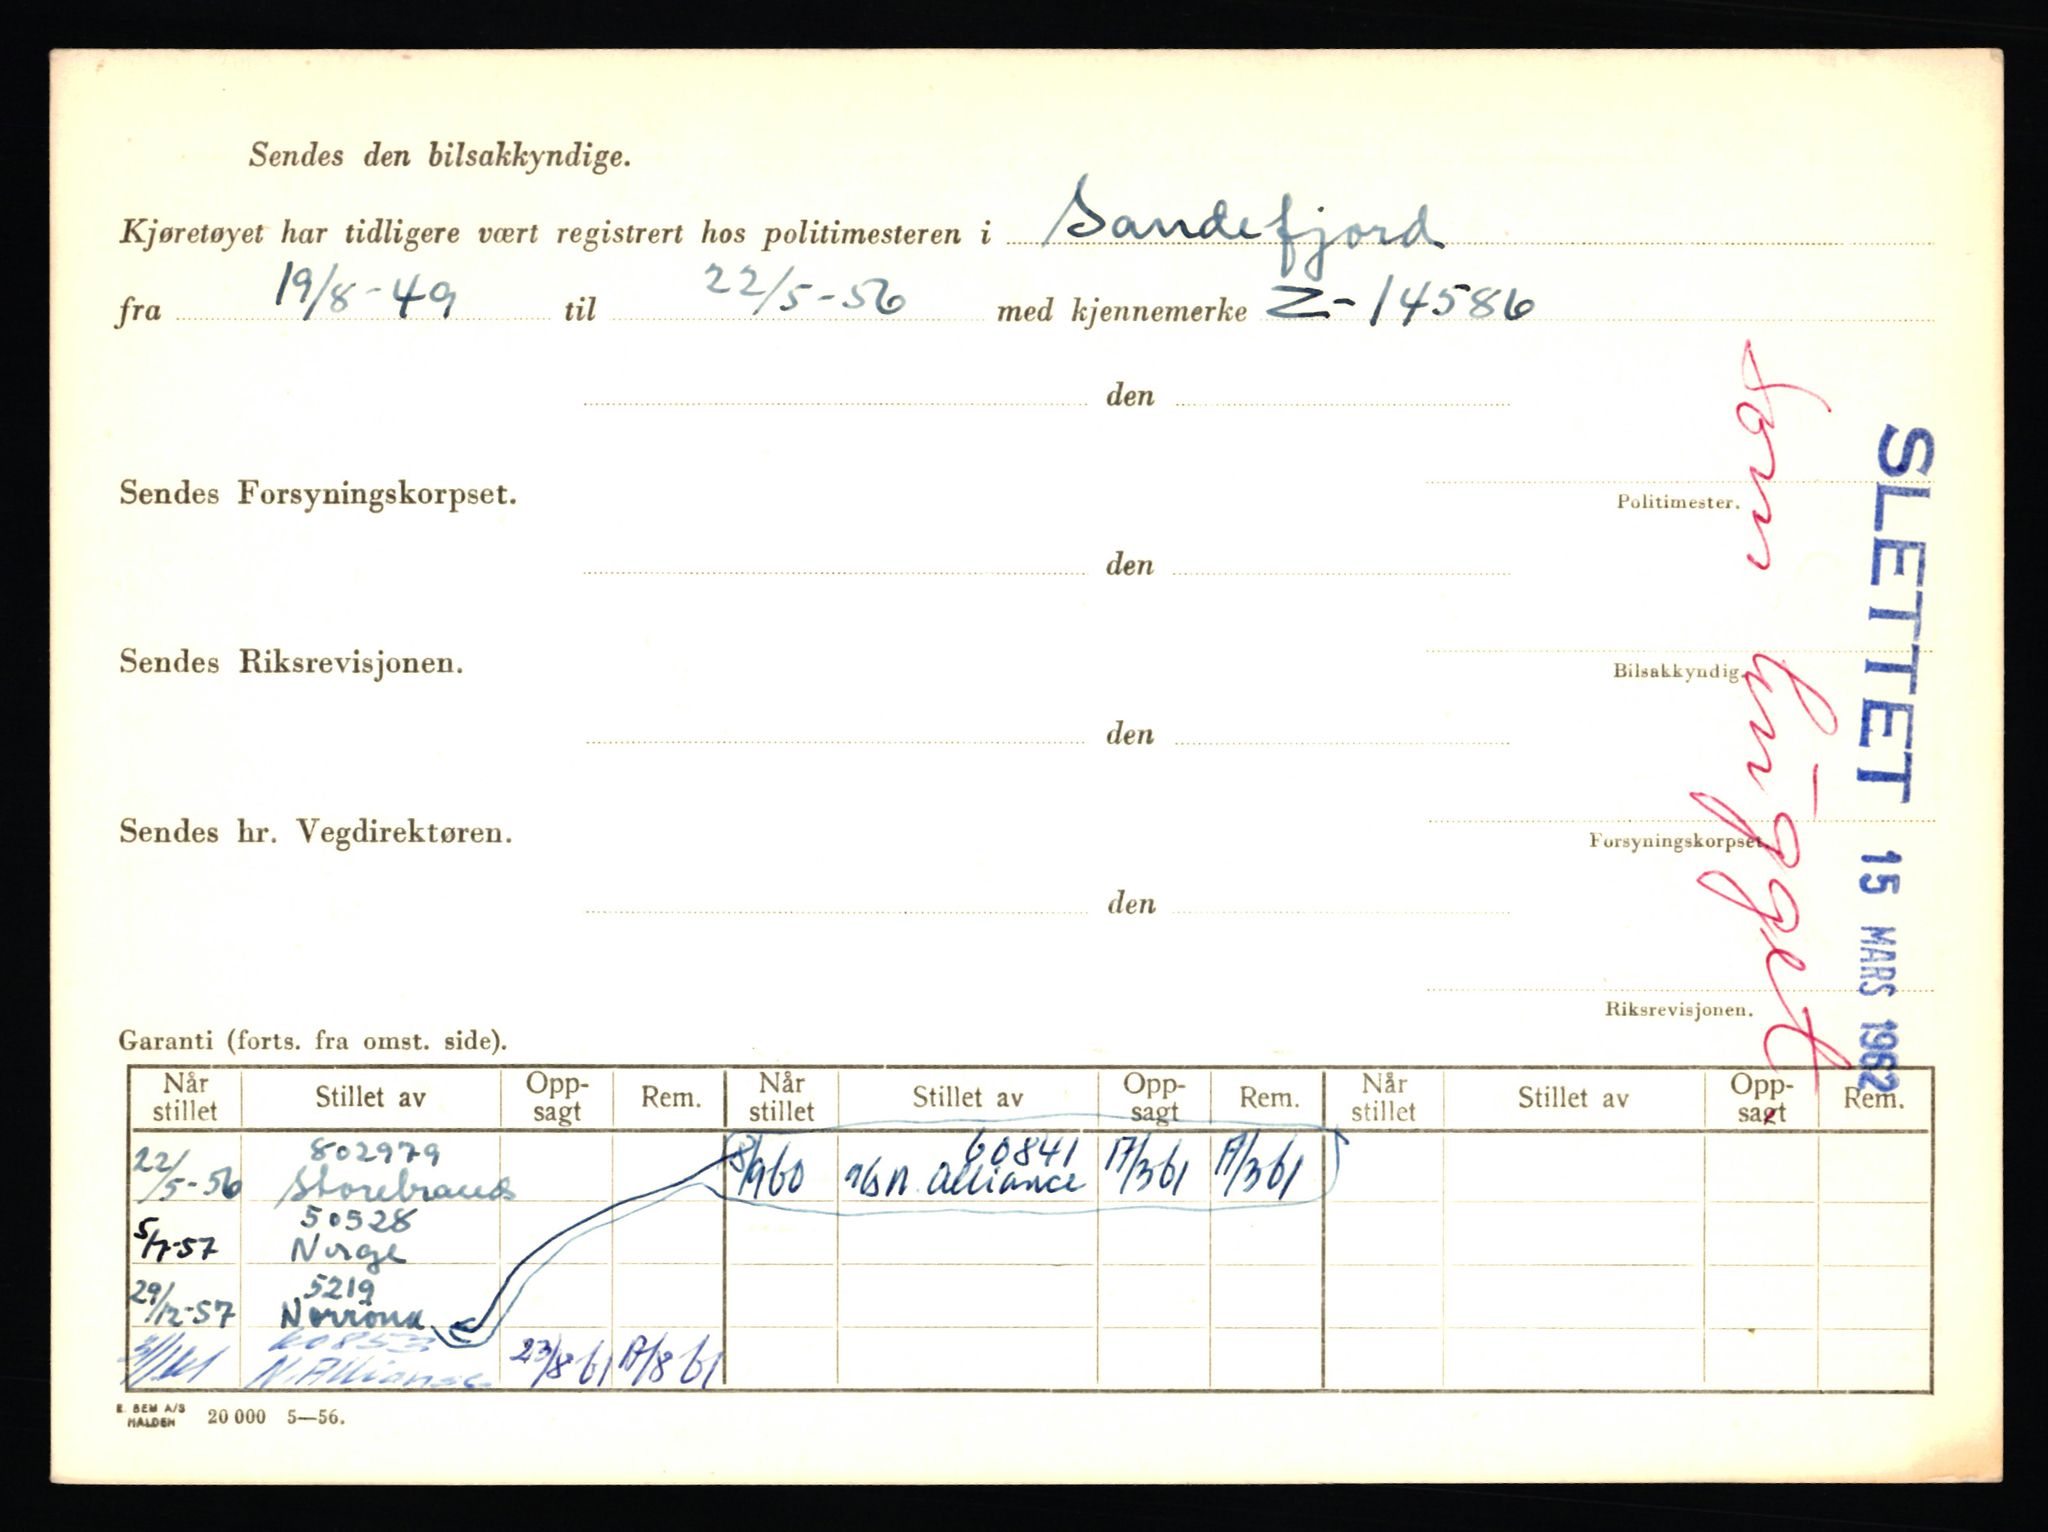 Sendes den bilsakkyndige.
Kjøretøyet har tidligere vært registrert hos politimesteren i Sandefjord
fra 19/8-49 til 22/5-56 med kjennemerke Z-14586
den
Sendes Forsyningskorpset.
Politimester.
den
Sendes Riksrevisjonen.
Bilsakkyndig.
den
Sendes hr. Vegdirektøren.
Forsyningskorpset
den
Riksrevisjonen.
Som hugget
SLETTET 15 MARS 1962
Garanti (forts. fra omst. side).
Når stillet Stillet av Opp-sagt Rem. Når stillet Stillet av Opp-sagt Rem. Når stillet Stillet av Opp-sagt Rem.
22/5-56 802979 Storebrand 60841 N. Alliance 17/3 61 17/3 61
5/7-57 50528 Norge
29/12-57 5219 Norrøna
60853 N. Alliance 23/8 61 17/8 61
E. SEM A/S HALDEN 20 000 5—56.